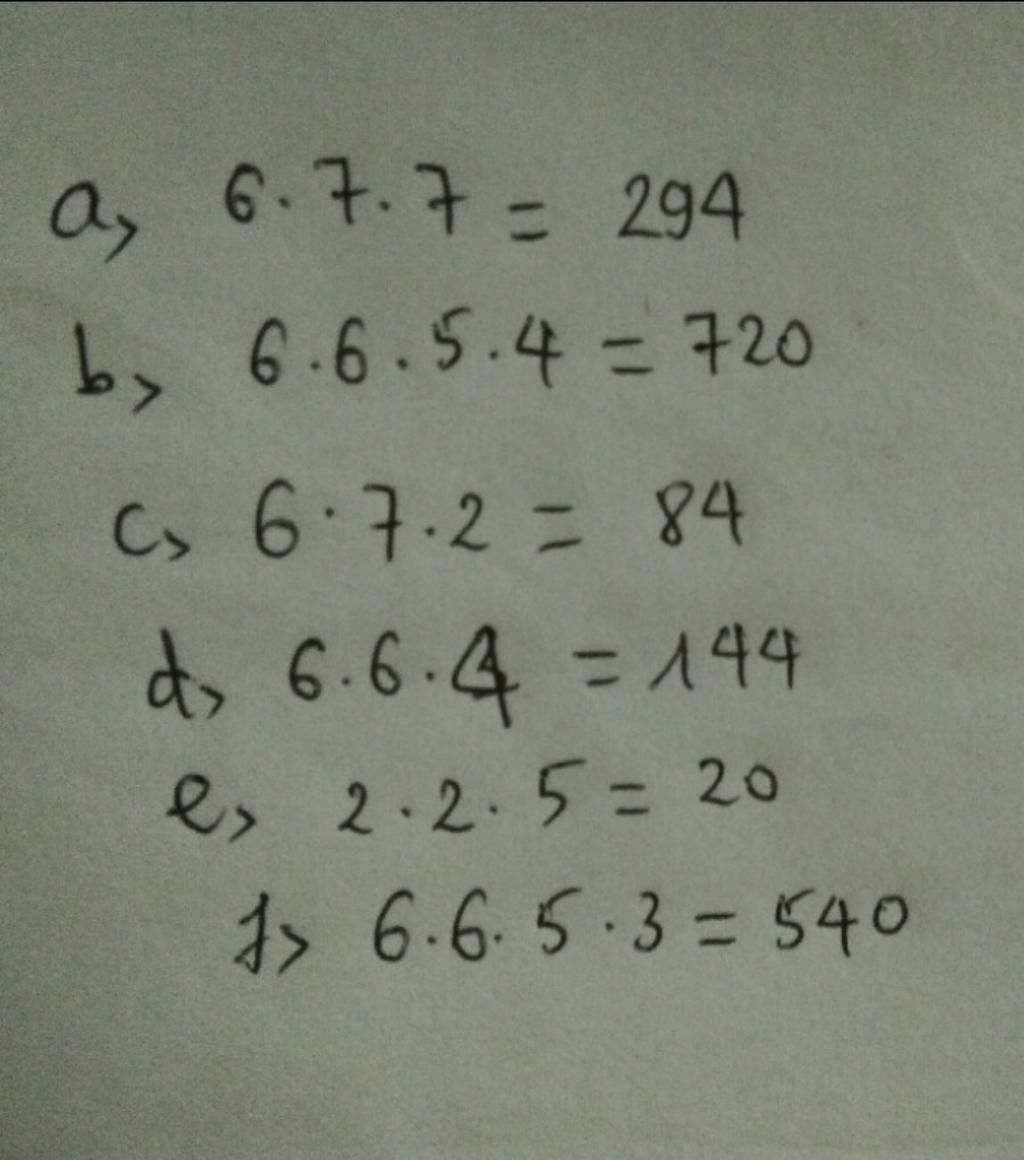 a, 6.7.7 = 294
b, 6.6.5.4 = 720
c, 6.7.2 = 84
d, 6.6.4 = 144
e, 2.2.5 = 20
f, 6.6.5.3 = 540